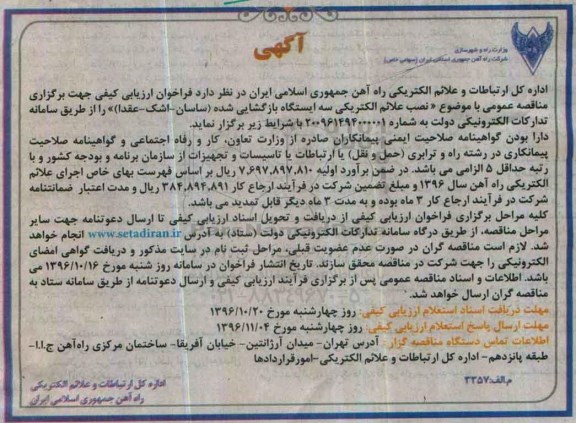 آگهی
وزارت راه و شهرسازی
شرکت راه آهن جمهوری اسلامی ایران (سهامی خاص)
اداره کل ارتباطات و علائم الکتریکی راه آهن جمهوری اسلامی ایران در نظر دارد فراخوان ارزیابی کیفی جهت برگزاری
مناقصه عمومی با موضوع « نصب علائم الکتریکی سه ایستگاه بازگشایی شده (ساسان-اشک-عقدا)» را از طریق سامانه
تدارکات الکترونیکی دولت به شماره ۲۰۰۹۶۱۴۹۴۰۰۰۰۰۱ با شرایط زیر برگزار نماید.
دارا بودن گواهینامه صلاحیت ایمنی پیمانکاران صادره از وزارت تعاون، کار و رفاه اجتماعی و گواهینامه صلاحیت
پیمانکاری در رشته راه و ترابری (حمل و نقل) یا ارتباطات یا تاسیسات و تجهیزات از سازمان برنامه و بودجه کشور و با
رتبه حداقل ۵ الزامی می باشد. در ضمن برآورد اولیه ۷,۶۹۷,۸۹۷,۸۱۰ ریال بر اساس فهرست بهای خاص اجرای علائم
الکتریکی راه آهن سال ۱۳۹۶ و مبلغ تضمین شرکت در فرآیند ارجاع کار ۳۸۴,۸۹۴,۸۹۱ ریال و مدت اعتبار ضمانتنامه
شرکت در فرآیند ارجاع کار ۳ ماه بوده و به مدت ۳ ماه دیگر قابل تمدید می باشد.
کلیه مراحل برگزاری فراخوان ارزیابی کیفی از دریافت و تحویل اسناد ارزیابی کیفی تا ارسال دعوتنامه جهت سایر
مراحل مناقصه، از طریق درگاه سامانه تدارکات الکترونیکی دولت (ستاد) به آدرس www.setadiran.ir انجام خواهد
شد. لازم است مناقصه گران در صورت عدم عضویت قبلی، مراحل ثبت نام در سایت مذکور و دریافت گواهی امضای
الکترونیکی را جهت شرکت در مناقصه محقق سازند. تاریخ انتشار فراخوان در سامانه روز شنبه مورخ ۱۳۹۶/۱۰/۱۶ می
باشد. اطلاعات و اسناد مناقصه عمومی پس از برگزاری فرآیند ارزیابی کیفی و ارسال دعوتنامه از طریق سامانه ستاد به
مناقصه گران ارسال خواهد شد.
مهلت دریافت اسناد استعلام ارزیابی کیفی: روز چهارشنبه مورخ ۱۳۹۶/۱۰/۲۰
مهلت ارسال پاسخ استعلام ارزیابی کیفی: روز چهارشنبه مورخ ۱۳۹۶/۱۱/۰۴
اطلاعات تماس دستگاه مناقصه گزار : آدرس تهران- میدان آرژانتین- خیابان آفریقا- ساختمان مرکزی راه‌آهن ج.ا.ا-
طبقه پانزدهم- اداره کل ارتباطات و علائم الکتریکی-امورقراردادها
م.الف:۳۳۵۷
اداره کل ارتباطات و علائم الکتریکی
راه آهن جمهوری اسلامی ایران